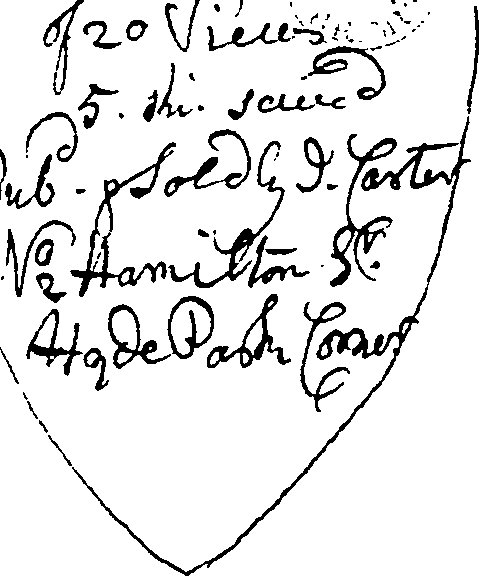 of 20 Views
5. shi. sewed
Pub.d & Sold by I. Carter
No 2 Hamilton St.
Hyde Park Corner